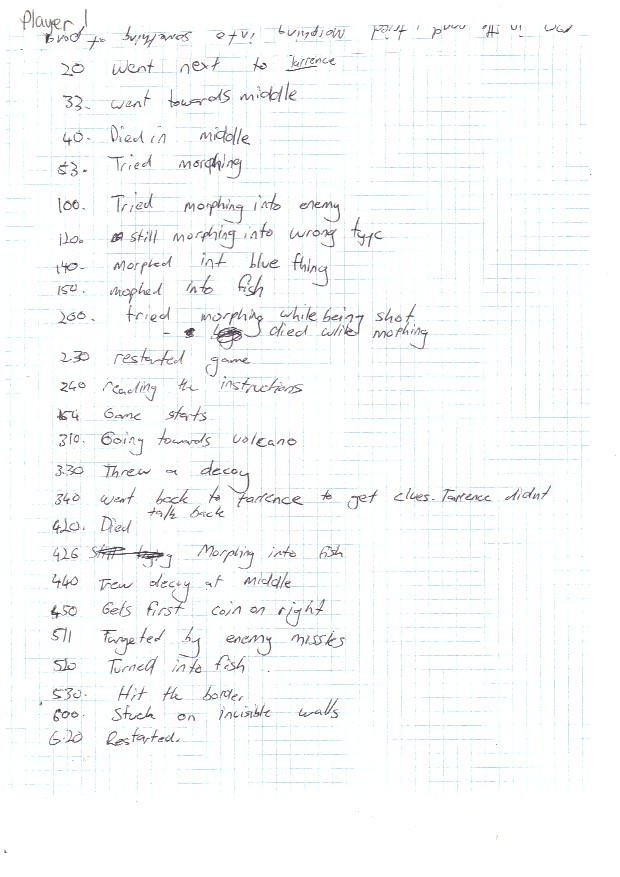 Player 1
ran in the and i tried morphing into something at
20 Went next to Tarrence
33. went towards middle
40. Died in middle
53. Tried morphing
100. Tried morphing into enemy
120. still morphing into wrong type
140- morphed int blue thing
150. mophed into fish
200. tried morphing while being shot
- died while morhing
230 restarted game
240 reading the instructions
Game starts
310. Going towards volcano
330 Threw a decoy
340 went back to Tarrence to get clues. Tarrence didnt
talk back
420. Died
426 Morphing into fish
440 Trew decoy at middle
450 Gets first coin on right
511 Targeted by enemy missles
520 Turned into fish
530. Hit the border
600. Stuck on invisible walls
6.20 Restarted.